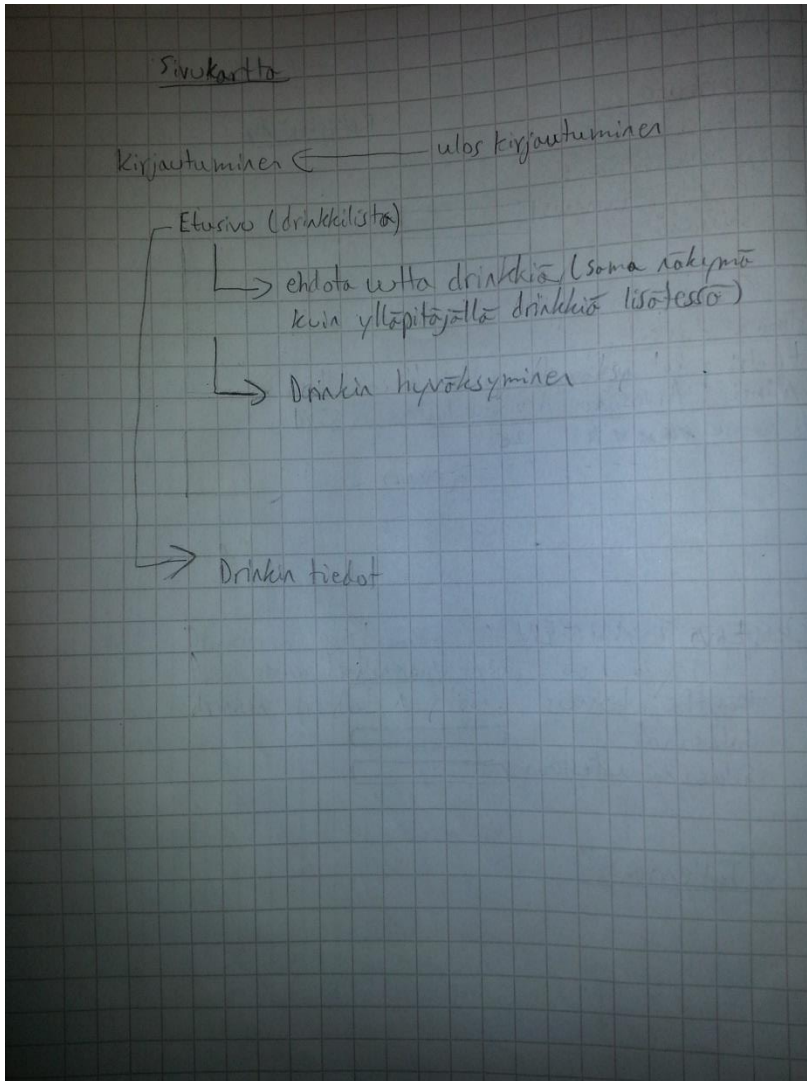 Sivukartta
Kirjautuminen ← ulos kirjautuminen
Etusivu (drinkkilista)
→ ehdota uutta drinkkiä (sama näkymä
kuin ylläpitäjällä drinkkiä lisätessä)
→ Drinkin hyväksyminen
→ Drinkin tiedot